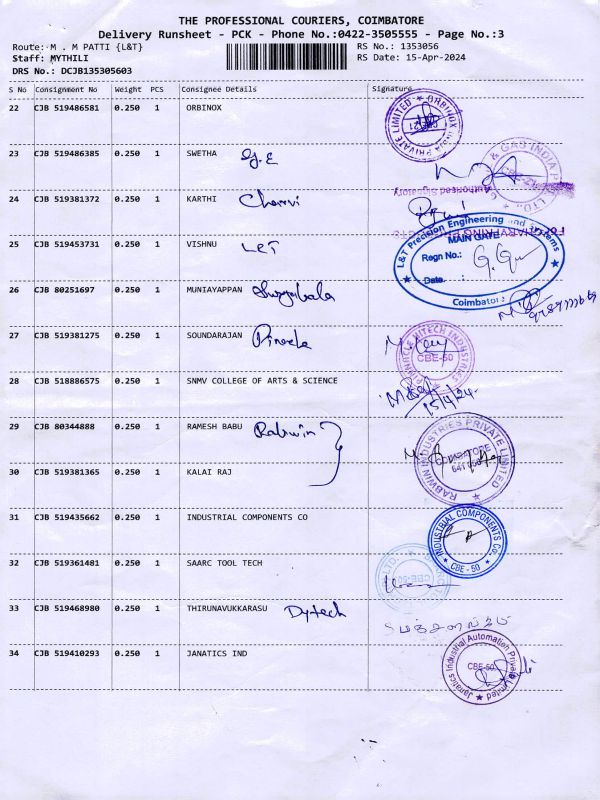 THE PROFESSIONAL COURIERS, COIMBATORE
Delivery Runsheet - PCK - Phone No.:0422-3505555 - Page No.:3
Route: M . M PATTI {L&T} RS No.: 1353056
Staff: MYTHILI RS Date: 15-Apr-2024
DRS No.: DCJB135305603
S No Consignment No Weight PCS Consignee Details Signature
22 CJB 519486581 0.250 1 ORBINOX ORBINOX INDIA PRIVATE LIMITED
23 CJB 519486385 0.250 1 SWETHA G.E & GAS INDIA
Authorised Signatory
24 CJB 519381372 0.250 1 KARTHI
25 CJB 519453731 0.250 1 VISHNU L&T L&T Precision Engineering and Systems
MAIN GATE
Regn No.:
Date :
Coimbatore
26 CJB 80251697 0.250 1 MUNIAYAPPAN
27 CJB 519381275 0.250 1 SOUNDARAJAN HITECH INDUSTRIES
CBE-50
28 CJB 518886575 0.250 1 SNMV COLLEGE OF ARTS & SCIENCE
15/4/24
29 CJB 80344888 0.250 1 RAMESH BABU Rabwin RABWIN INDUSTRIES PRIVATE LIMITED
30 CJB 519381365 0.250 1 KALAI RAJ
31 CJB 519435662 0.250 1 INDUSTRIAL COMPONENTS CO INDUSTRIAL COMPONENTS CO.
CBE - 50
32 CJB 519361481 0.250 1 SAARC TOOL TECH
33 CJB 519468980 0.250 1 THIRUNAVUKKARASU Dytech
34 CJB 519410293 0.250 1 JANATICS IND Janatics Industrial Automation Private Limited
CBE-50